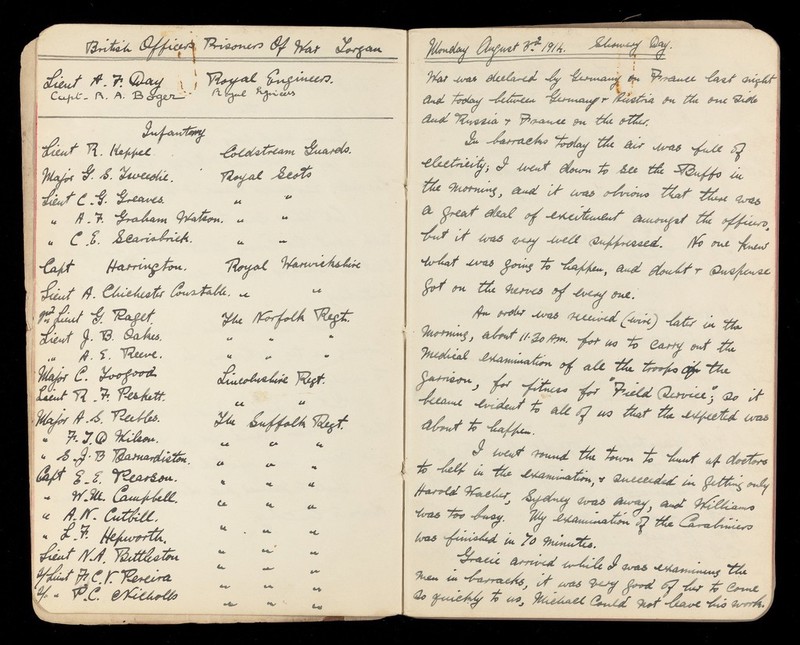 British Officers Prisoners Of War Torgau
Lieut A. F. Day Royal Engineers.
Capt. R. A. Boger Royal Engineers
Infantry
Lieut R. Keppel Coldstream Guards.
Major G. S. Tweedie. Royal Scots
Lieut C. G. Greaves. " "
" A. F. Graham Watson. " "
" C. E. Scarisbrick. " "
Capt Harrington. Royal Warwickshire
Lieut A. Chichester Constable. " "
2nd Lieut G. Paget The Norfolk Regt.
Lieut J. B. Oakes. " " "
" A. E. Reeve. " " "
Major C. Toogood Lincolnshire Regt.
Lieut R. F. Peskett. " "
Major A. S. Peebles. The Suffolk Regt.
" F. T. D Wilson. " " "
" S. J. B Barnardiston. " " "
Capt E. E. Pearson. " " "
" W. M. Campbell. " " "
" A. N. Cutbill.
" L. F. Hepworth. " " "
Lieut N. A. Bittleston " " "
2/Lieut F. C. V. Pereira " " "
2/ " P. C. Nicholls " " "
" " "
Monday August 3rd 1914. Showery Day.
War was declared by Germany on France last night
and today between Germany & Austria on the one side
and Russia & France on the other.
In barracks today the air was full of
electricity; I went down to see the Buffs in
the morning, and it was obvious that there was
a great deal of excitement amongst the officers,
but it was very well suppressed. No one knew
what was going to happen, and doubt & suspense
got on the nerves of every one.
An order was received (wire) later in the
morning, about 11.30 AM. for us to carry out the
medical examination of all the troops in the
garrison, for fitness for "Field Service"; so it
became evident to all of us that the expected was
about to happen.
I went round the town to hunt up doctors
to help in the examination, & succeeded in getting only
Harold Wacher, Sydney was away, and Williams
was too busy. My examination of the Carabiniers
was finished in 70 minutes.
Gracie arrived while I was examining the
men in barracks, it was very good of her to come
so quickly to us, Michael could not leave his work.